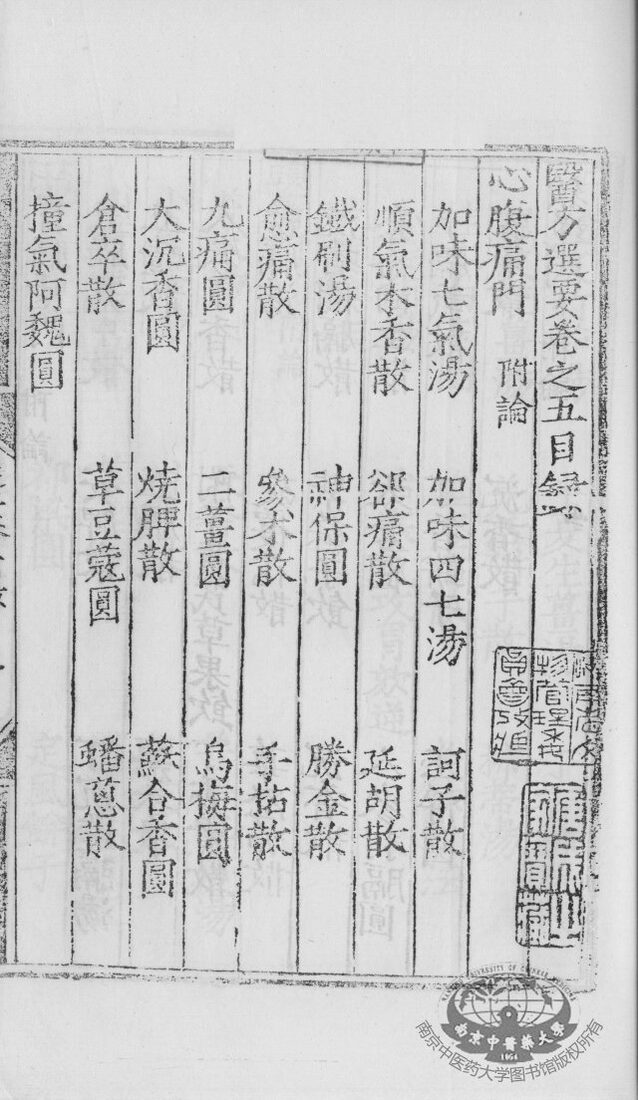 醫方選要卷之五目録
心腹痛門 附論
加味七氣湯 加味四七湯 訶子散
順氣木香散 卻痛散 延胡散
鐵刷湯 神保圓 勝金散
愈痛散 參术散 手拈散
九痛圓 二薑圓 烏梅圓
大沉香圓 燒脾散 蘇合香圓
倉卒散 草豆蔻圓 蟠葱散
撞氣阿魏圓
NANJING UNIVERSITY OF CHINESE MEDICINE
南京中醫藥大學
1954
南京中医药大学图书馆版权所有